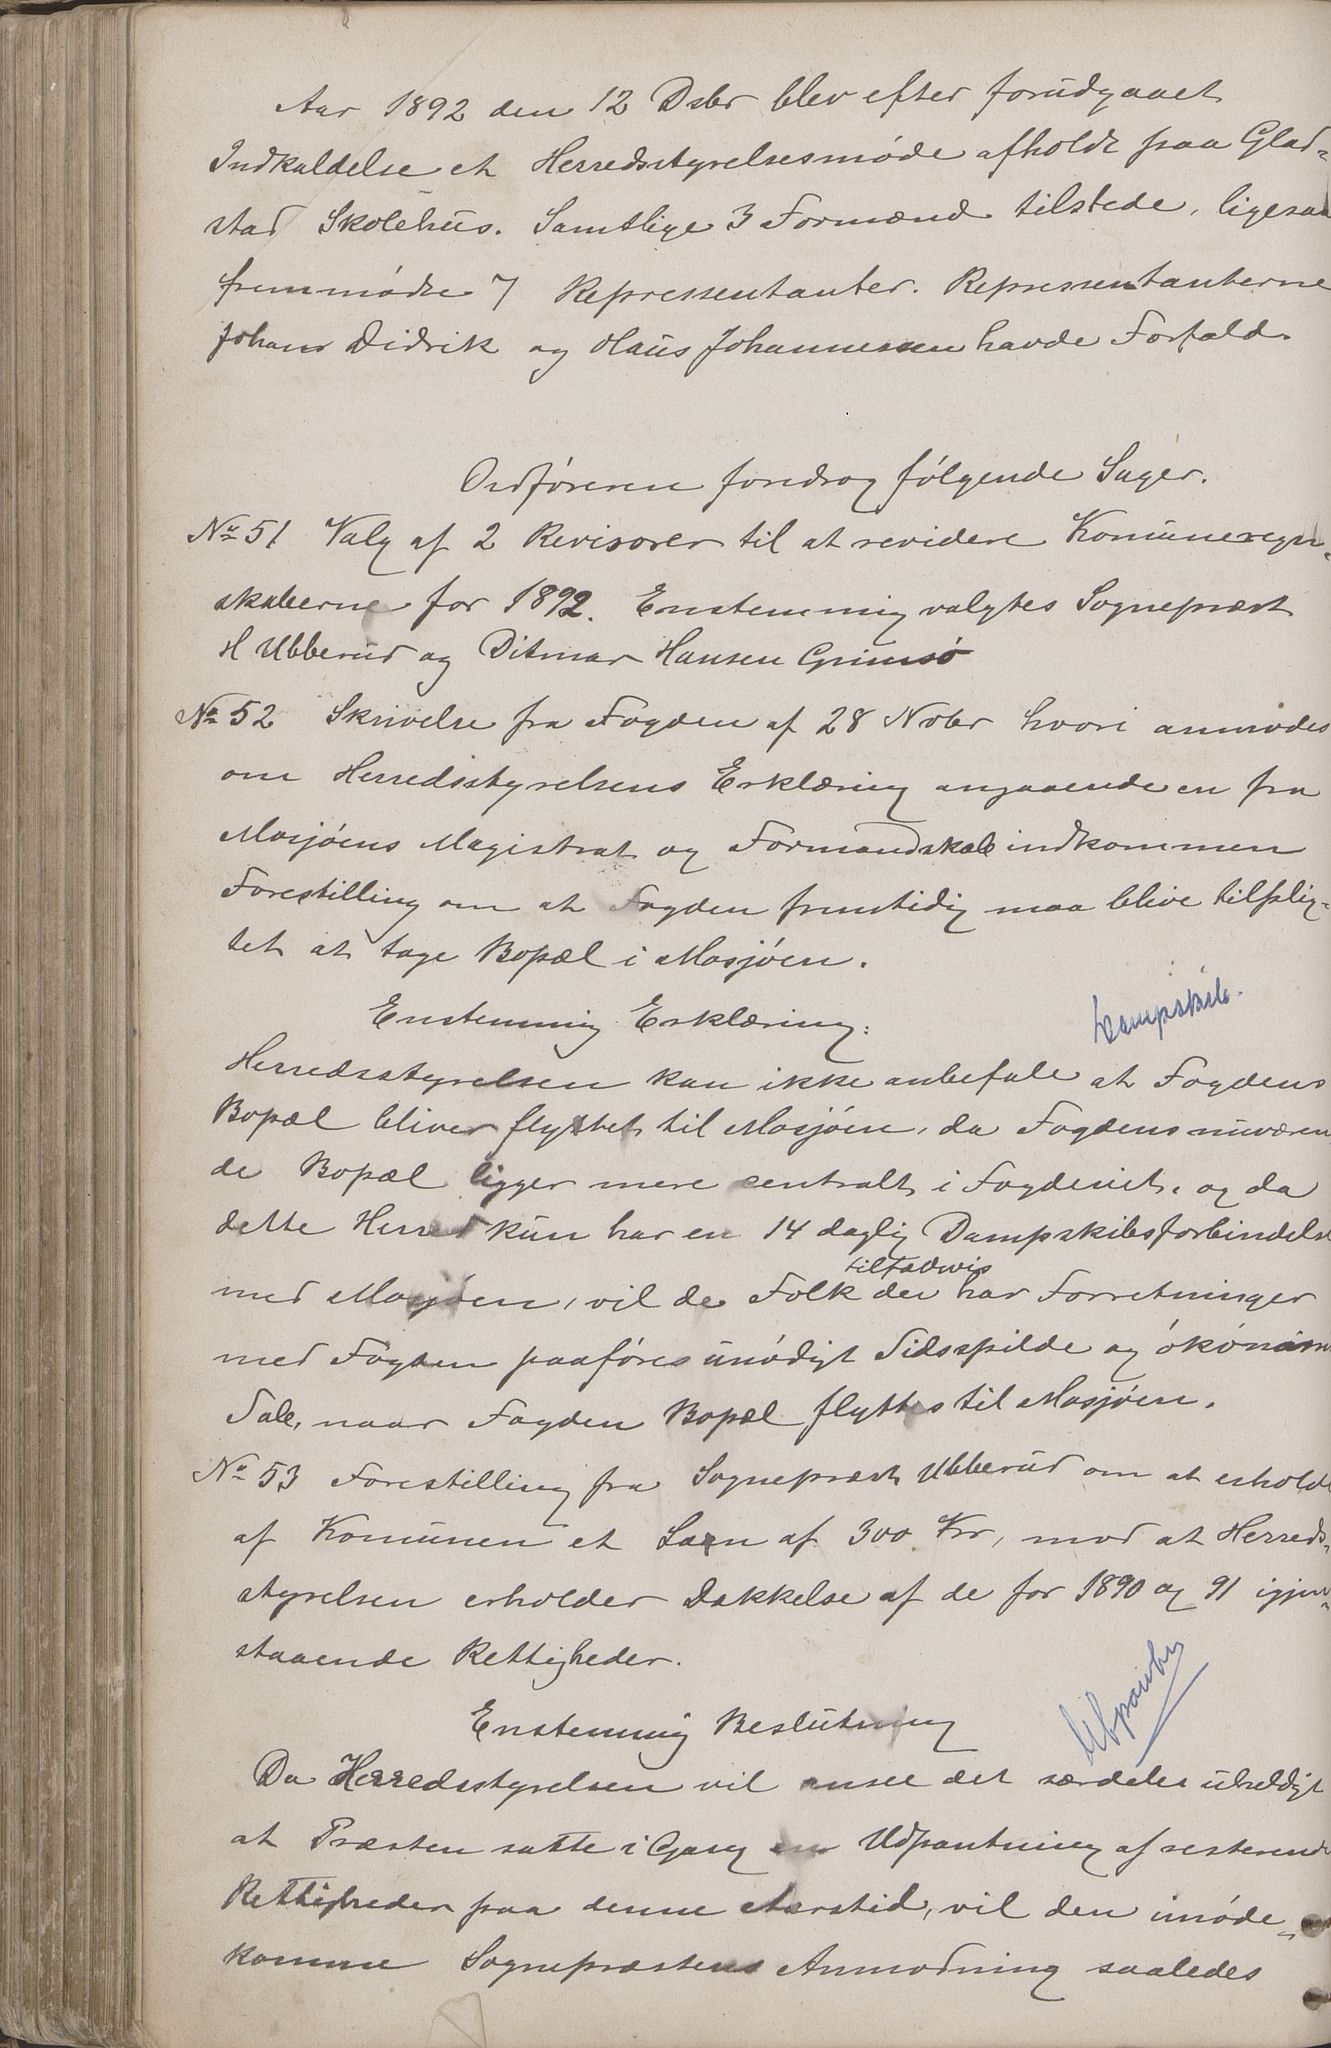 Aar 1892 den 12 Dsbr blev efter forudgaaet
Indkaldelse et Herredsstyrelsesmøde afholdt paa Glad-
stad Skolehus. Samtlige 3 Formænd tilstede, ligesaa
fremmødte 7 Repressentanter. Repressentanterne
Johan Didrik og Hans Johannessen havde Forfald.
Ordføreren foredrog følgende Sager.
No 51 Valg af 2 Revisorer til at revidere Komuneregn-
skaberne for 1892. Enstemmig valgtes Sognepræst
H Ubberud og Ditmar Hansen Grimsø
No 52 Skrivelse fra Fogden af 28 Nvbr hvori anmodes
om Herredsstyrelsens Erklæring angaaende en fra
Mosjøens Magistrat og Formandskab indkommen
Forestilling om at Fogden fremtidig maa blive tilplig-
tet at tage Bopæl i Mosjøen.
Enstemmig Erklæring:
Dampskib.
Herredsstyrelsen kan ikke anbefale at Fogdens
Bopæl bliver flyttet til Mosjøen, da Fogdens nuværen
de Bopæl ligger mere centralt i Fogderiet, og da
dette Herred kun har en 14 daglig Dampskibsforbindelse
med Mosjøen, vil de Folk der tilfædvis har Forretninger
med Fogden paaføres unødigt Tidsspilde og økonom
Tab, naar Fogden Bopæl flyttes til Mosjøen.
No 53 Forestilling fra Sogneprest Ubberud om at erholde
af Komunen et Laan af 300 Kr, mod at Herreds-
styrelsen erholder Dækkelse af de for 1890 og 91 igjen-
staaende Rettigheder.
Enstemmig Beslutning
Udpantng
Da Herredsstyrelsen vil ansee det særdeles uheldigt
at Præsten satte i Gang en Udpantning af resterende
Rettigheder paa denne Aarstid, vil den imøde-
komme Sogneprestens Anmodning saaledes